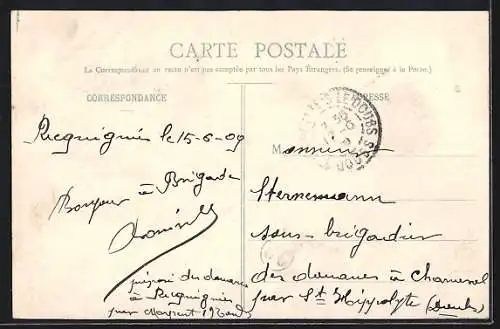 CARTE POSTALE
La Correspondance au recto n'est pas acceptée par tous les Pays Étrangers. (Se renseigner à la Poste.)
CORRESPONDANCE
ADRESSE
Recquignies le 15-6-09
Bonjour à Brigade
préposé du douanes
à Recquignies
par
Monsieur
Sternemann
sous-brigadier
des douanes à Chamesol
par St Hippolyte (Doubs)
DOUBS